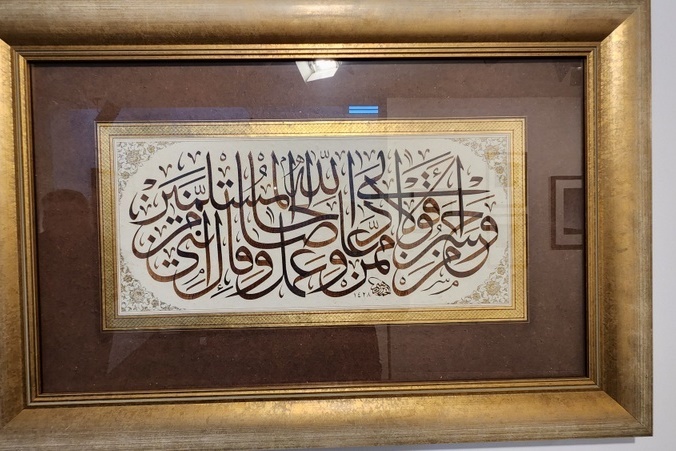 وَمَنْ أَحْسَنُ قَوْلًا مِمَّنْ دَعَا إِلَى اللَّهِ وَعَمِلَ صَالِحًا وَقَالَ إِنَّنِي مِنَ الْمُسْلِمِينَ
١٤٢٨